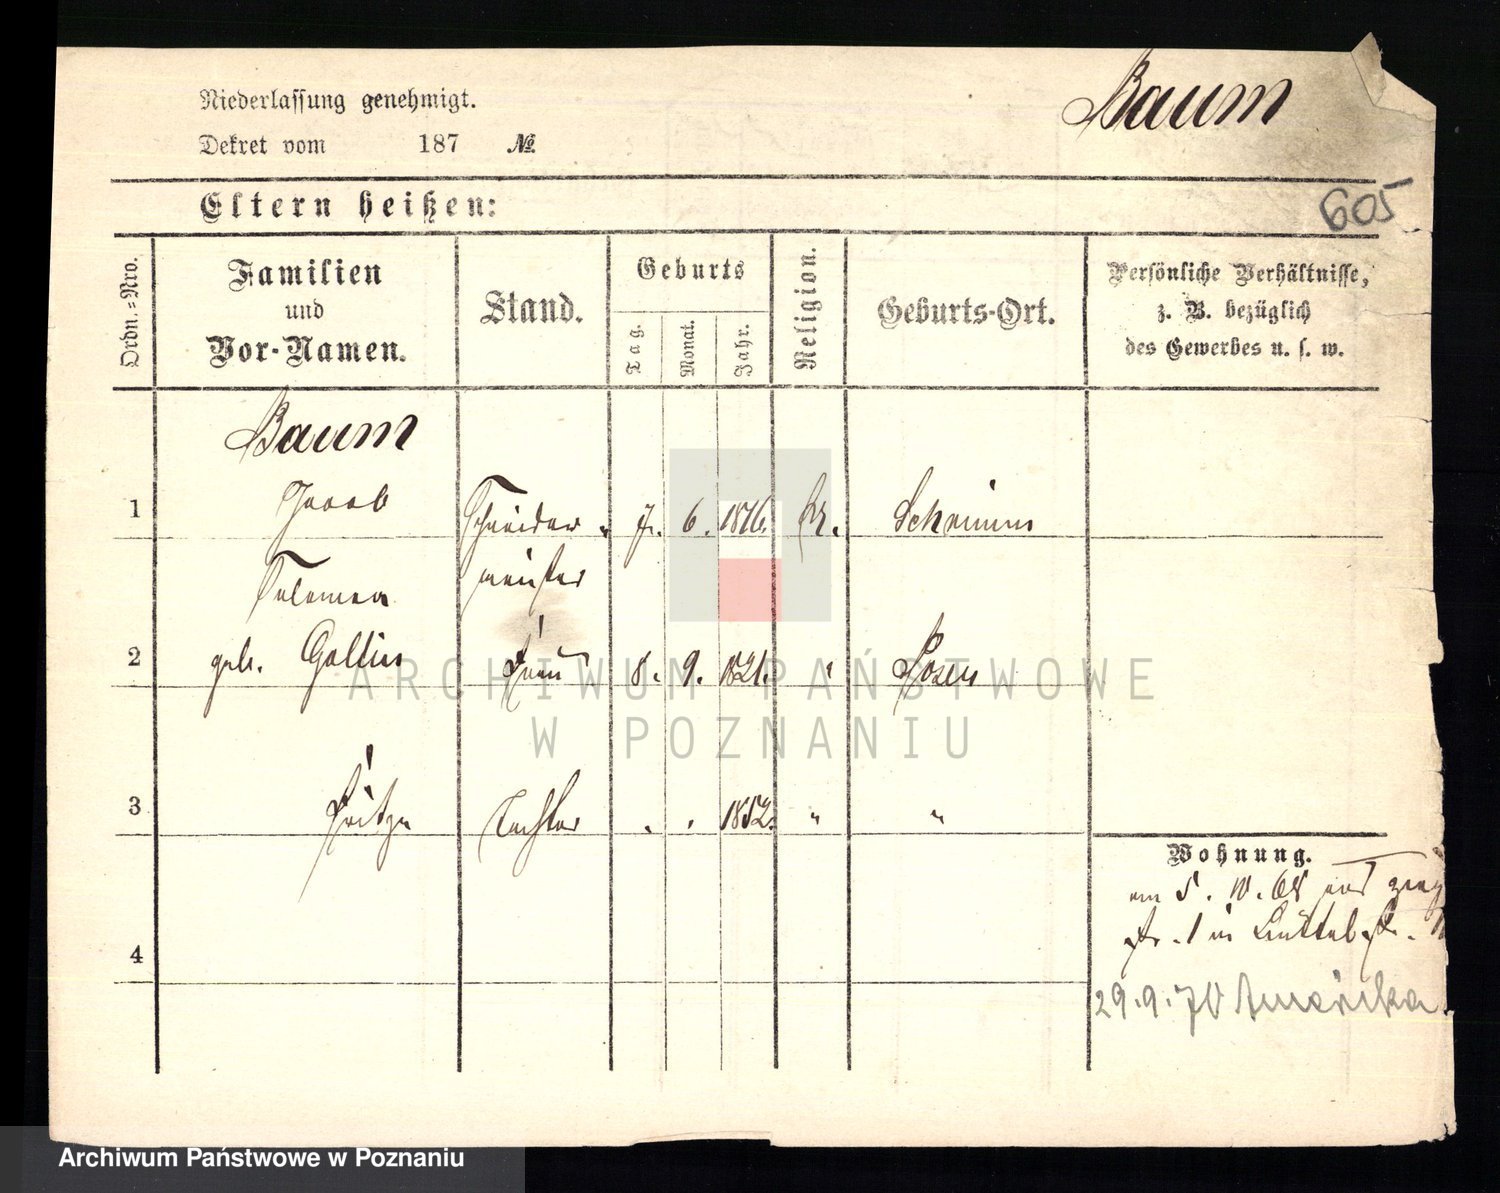 Niederlassung genehmigt.
Baum
Dekret vom 187 №
Eltern heißen:
605
Ordn.-Nro.
Familien
und
Vor-Namen.
Stand.
Geburts
Tag.
Monat.
Jahr.
Religion.
Geburts-Ort.
Persönliche Verhältnisse,
z. B. bezüglich
des Gewerbes u. s. w.
Baum
1 Jacob Schneider- 7. 6. 1816.
meister
2 geb. Frau 8. 9. 1821. " Posen
3 Tochter . . 1852. " "
4
Wohnung.
am 5. 10. 68 aus
str. 1 in
29.9.70 Amerika
ARCHIWUM PAŃSTWOWE
W POZNANIU
Archiwum Państwowe w Poznaniu